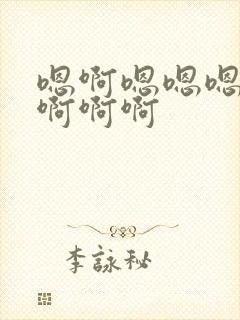 嗯啊嗯嗯嗯
啊啊啊
李詠秘